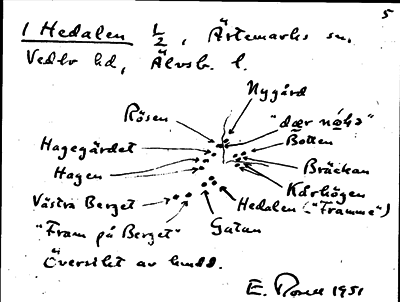 5
1 Hedalen 1/2, Ärtemarks sn,
Vedbo hd, Älvsb. l.
Nygård
Rösen
"dær nol·ə"
Botten
Hagegärdet
Bräckan
Hagen
Kårhögen
Västra Berget
Hedalen ("Framme")
"Fram på Berget"
Gatan
Översikt av bebyggd.
E. 1951